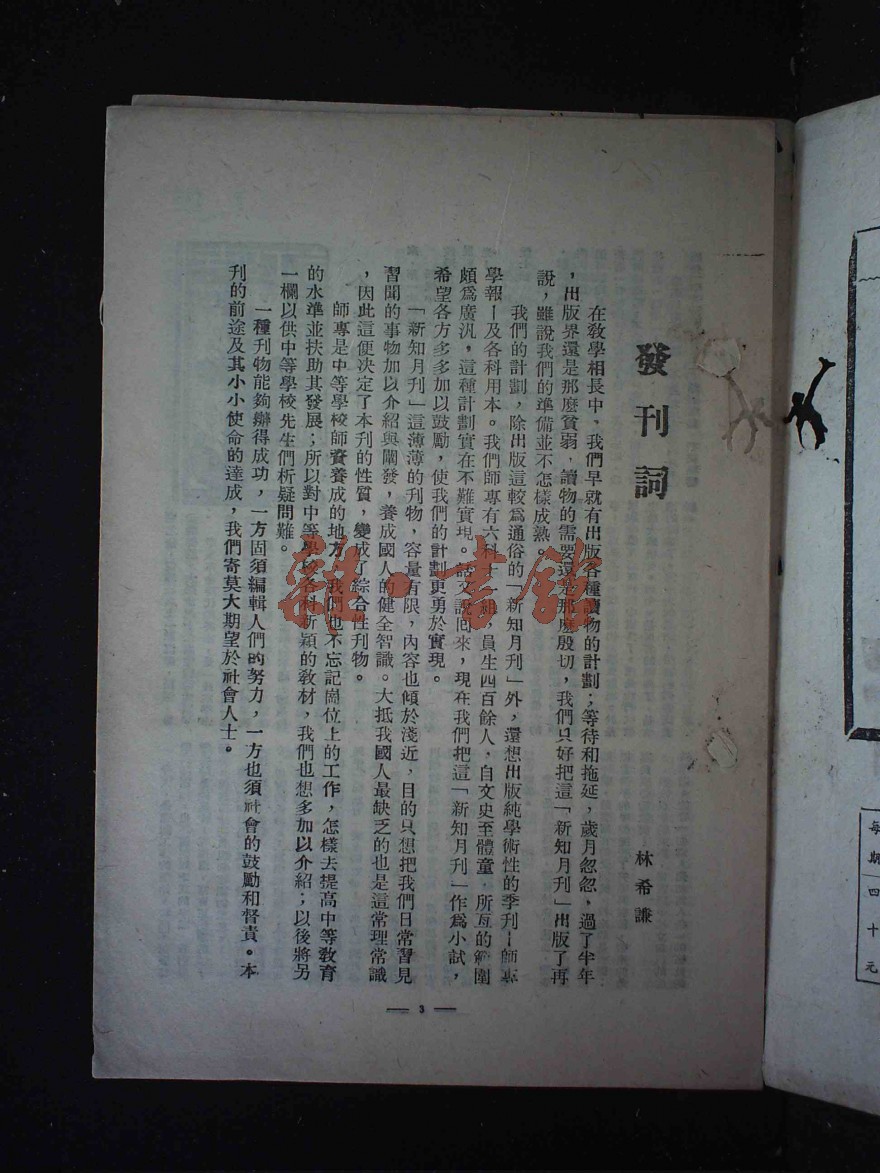 發刊詞
林希謙
在教學相長中、我們早就有出版各種讀物的計劃；等待和拖延，歲月忽忽，過了半年
，出版界還是那麼貧弱，讀物的需要還是那麼殷切，我們只好把這「新知月刊」出版了再
說，雖說我們的準備並不怎樣成熟。
我們的計劃，除出版這較爲通俗的「新知月刊」外，還想出版純學術性的季刊—師專
學報—及各科用本。我們師專有六科一組，員生四百餘人，自文史至體童，所亙的範圍
頗爲廣汎，這種計劃實在不難實現。話又說回來，現在我們把這「新知月刊」作爲小試，
希望各方多多加以鼓勵，使我們的計劃更勇於實現。
「新知月刊」這薄薄的刊物，容量有限，內容也傾於淺近，目的只想把我們日常習見
習聞的事物加以介紹與闡發，養成國人的健全智識。大抵我國人最缺乏的也是這常理常識
，因此這便決定了本刊的性質，變成了綜合性刊物。
師專是中等學校師資養成的地方，我們也不忘記崗位上的工作，怎樣去提高中等教育
的水準並扶助其發展；所以對中等學校各科新穎的教材，我們也想多加以介紹；以後將另
一欄以供中等學校先生們析疑問難。
一種刊物能夠辦得成功，一方固須編輯人們的努力，一方也須社會的鼓勵和督責。本
刊的前途及其小小使命的達成，我們寄莫大期望於社會人士。
— 3 —
每期四十元
雜·書館